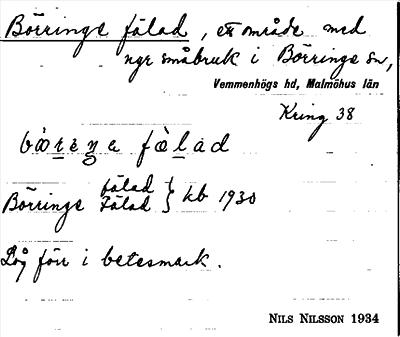 Börringe fälad, ett område med
ngr småbruk i Börringe sn,
Vemmenhögs hd, Malmöhus län
Kring 38
fälad
Börringe Fälad } kb 1930
Låg förr i betesmark.
NILS NILSSON 1934